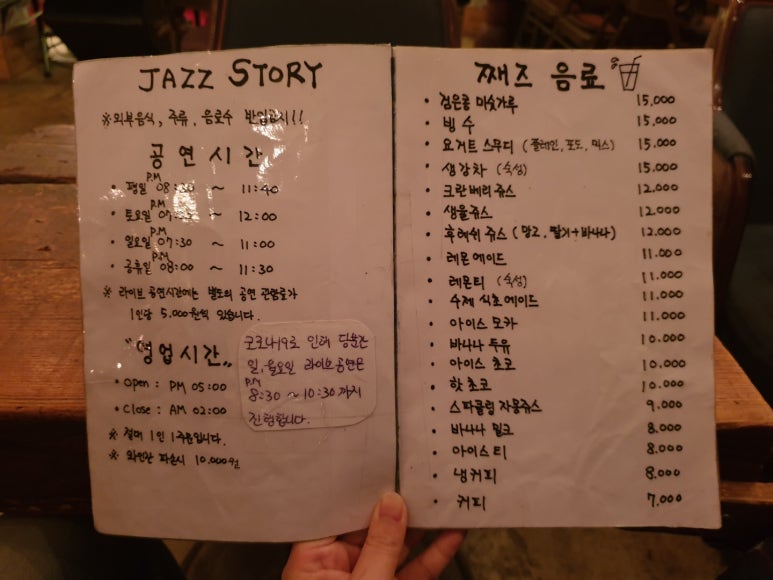 JAZZ STORY
※외부음식, 주류, 음료수 반입금지!!
공연시간
P.M
• 평일 08:30 ~ 11:40
P.M
• 토요일 07: ~ 12:00
P.M
• 일요일 07:30 ~ 11:00
P.M
• 공휴일 08:00 ~ 11:30
※ 라이브 공연시간에는 별도의 공연 관람료가
1인당 5.000원씩 있습니다.
"영업시간"
• Open : PM 05:00
• Close : AM 02:00
※ 절대 1인 1주문입니다.
※ 와인잔 파손시 10.000원
코로나19로 인해 당분간
일,월요일 라이브공연은
P.M
8:30 ~ 10:30 까지
진행합니다.
째즈 음료
• 검은콩 미숫가루 15,000
• 빙수 15.000
• 요거트 스무디 (플레인, 포도, 믹스) 15.000
• 생강차 (숙성) 15.000
• 크란베리쥬스 12.000
• 생율쥬스 12.000
• 후레쉬 쥬스 (망고, 딸기+바나나) 12,000
• 레몬에이드 11.000
• 레몬티 (숙성) 11.000
• 수제 식초에이드 11.000
• 아이스 모카 11.000
• 바나나 두유 10.000
• 아이스 초코 10.000
• 핫 초코 10.000
• 스파클링 자몽쥬스 9.000
• 바나나 밀크 8.000
• 아이스티 8.000
• 냉커피 8.000
• 커피 7.000